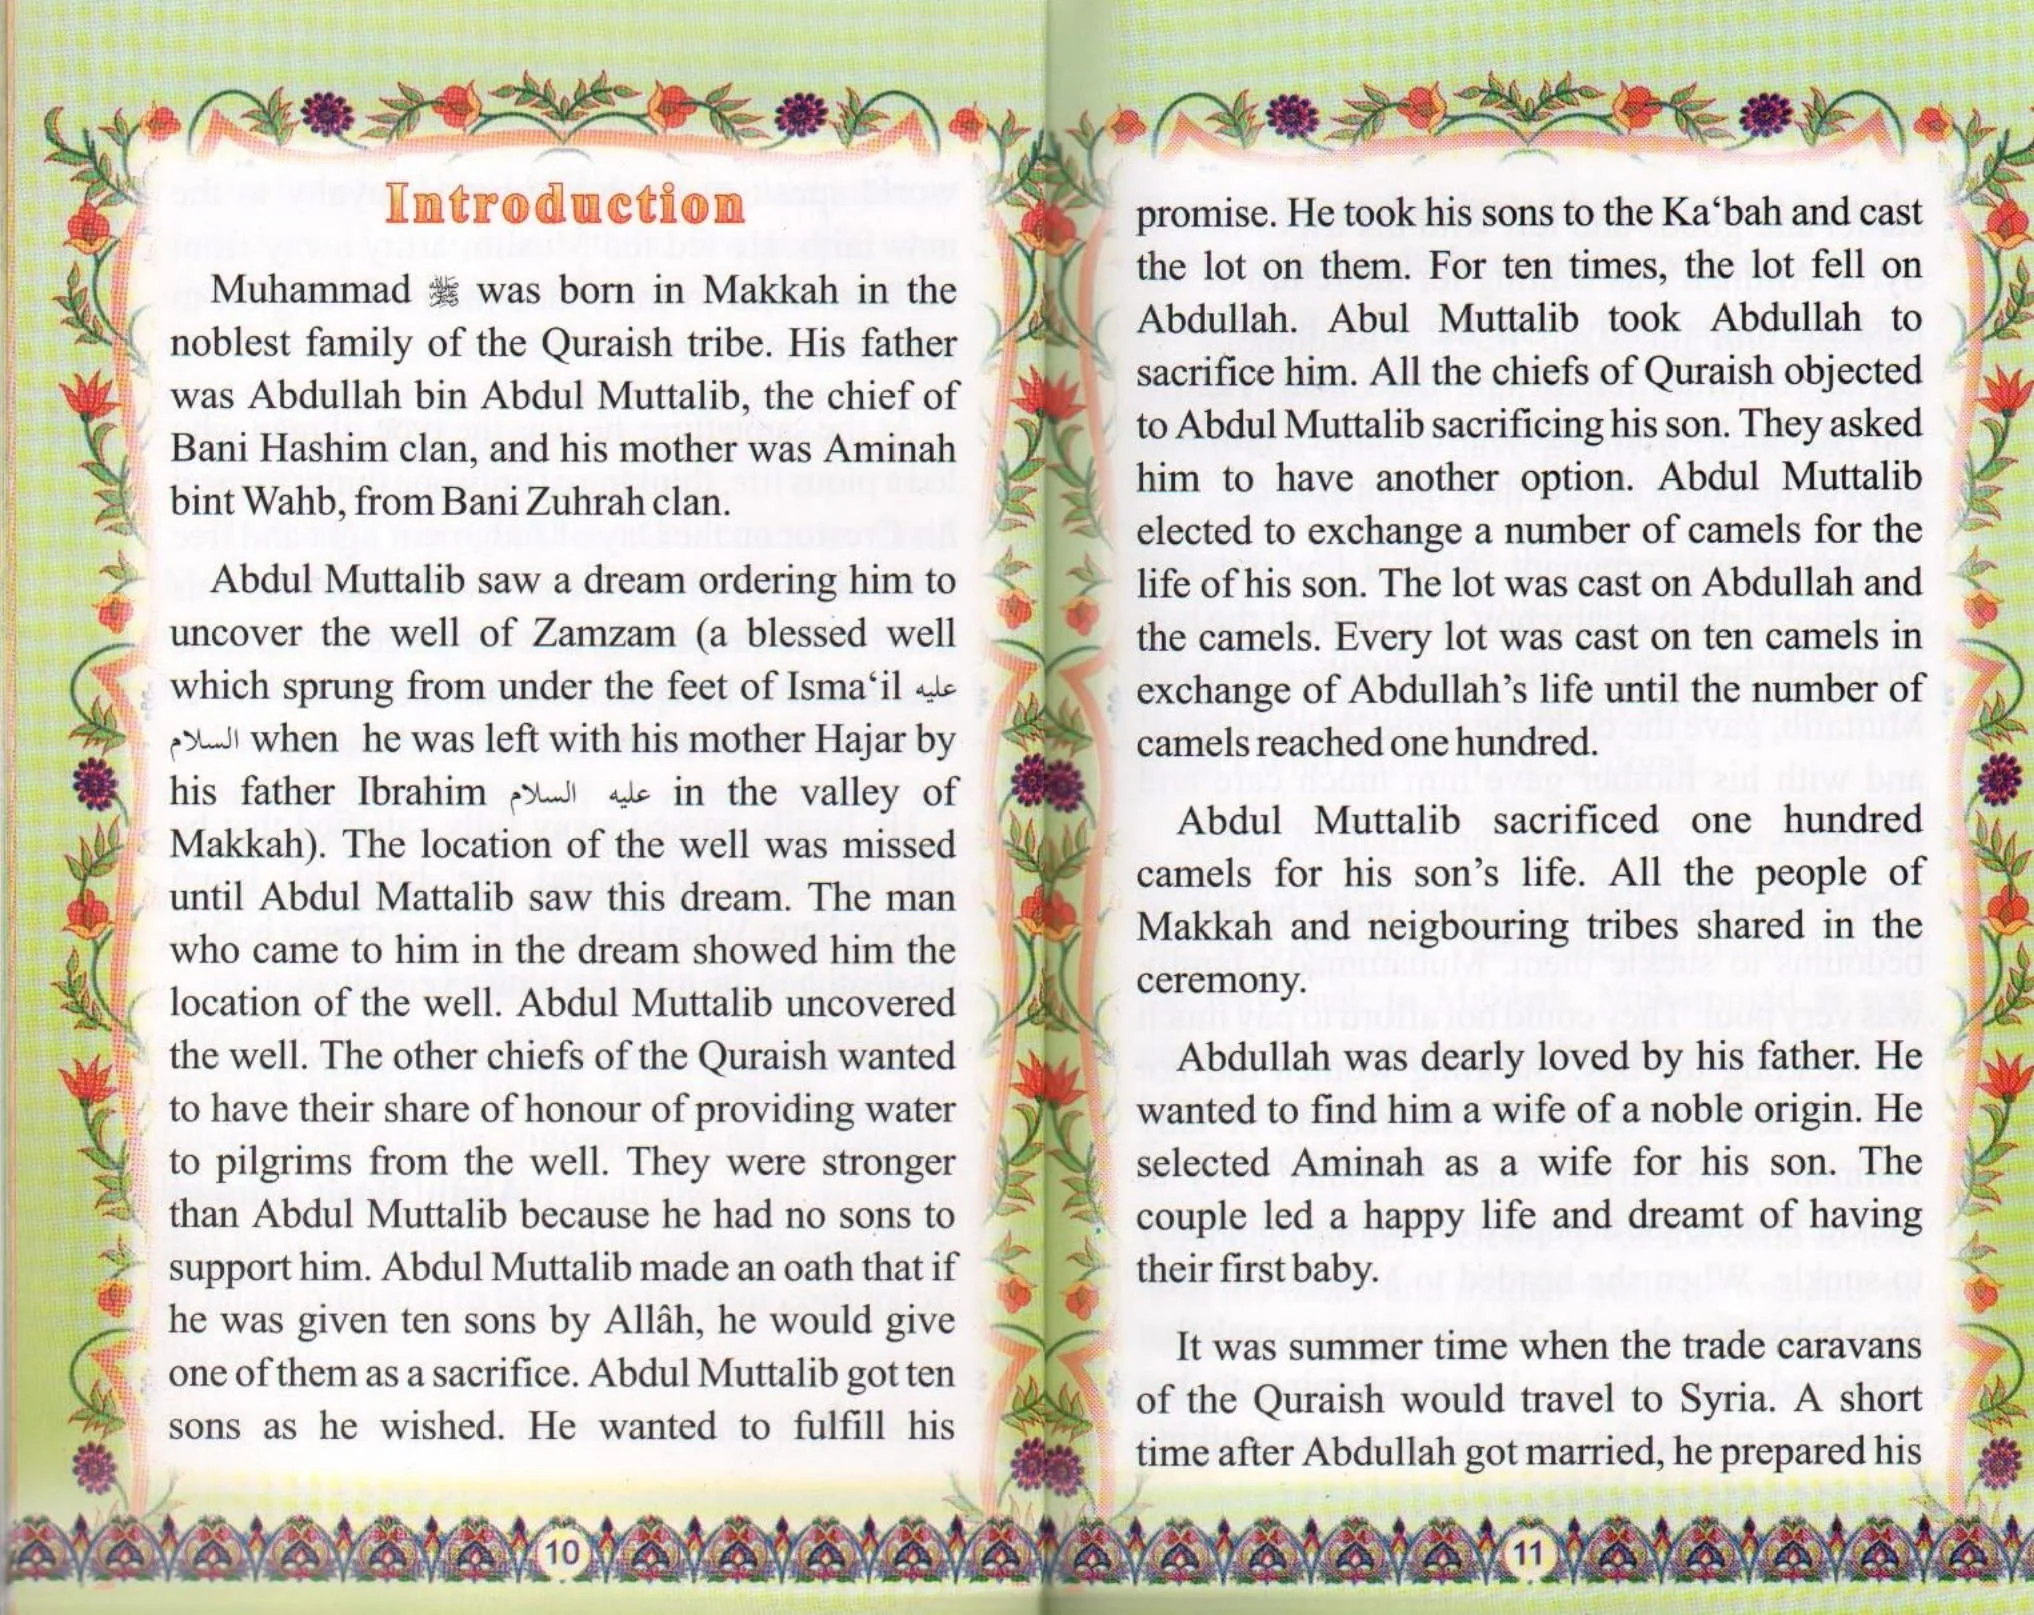 Introduction
Muhammad ﷺ was born in Makkah in the
noblest family of the Quraish tribe. His father
was Abdullah bin Abdul Muttalib, the chief of
Bani Hashim clan, and his mother was Aminah
bint Wahb, from Bani Zuhrah clan.
Abdul Muttalib saw a dream ordering him to
uncover the well of Zamzam (a blessed well
which sprung from under the feet of Isma‘il عليه
السلام when he was left with his mother Hajar by
his father Ibrahim عليه السلام in the valley of
Makkah). The location of the well was missed
until Abdul Mattalib saw this dream. The man
who came to him in the dream showed him the
location of the well. Abdul Muttalib uncovered
the well. The other chiefs of the Quraish wanted
to have their share of honour of providing water
to pilgrims from the well. They were stronger
than Abdul Muttalib because he had no sons to
support him. Abdul Muttalib made an oath that if
he was given ten sons by Allâh, he would give
one of them as a sacrifice. Abdul Muttalib got ten
sons as he wished. He wanted to fulfill his
10
promise. He took his sons to the Ka‘bah and cast
the lot on them. For ten times, the lot fell on
Abdullah. Abul Muttalib took Abdullah to
sacrifice him. All the chiefs of Quraish objected
to Abdul Muttalib sacrificing his son. They asked
him to have another option. Abdul Muttalib
elected to exchange a number of camels for the
life of his son. The lot was cast on Abdullah and
the camels. Every lot was cast on ten camels in
exchange of Abdullah’s life until the number of
camels reached one hundred.
Abdul Muttalib sacrificed one hundred
camels for his son’s life. All the people of
Makkah and neigbouring tribes shared in the
ceremony.
Abdullah was dearly loved by his father. He
wanted to find him a wife of a noble origin. He
selected Aminah as a wife for his son. The
couple led a happy life and dreamt of having
their first baby.
It was summer time when the trade caravans
of the Quraish would travel to Syria. A short
time after Abdullah got married, he prepared his
11